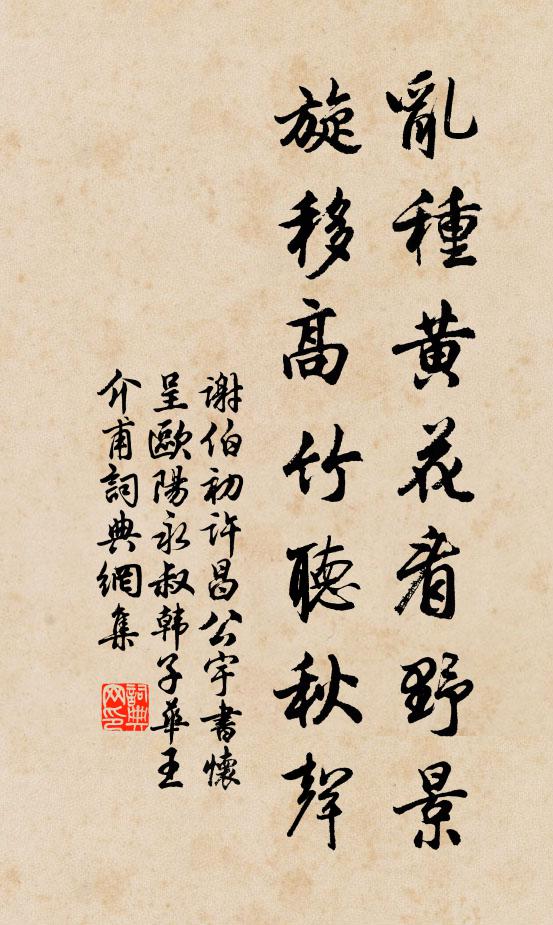 亂種黄花看野景
旋移高竹聽秋聲
谢伯初许昌公宇書懷
呈歐陽永叔韩子華王
介甫詞典網集
詞典网印